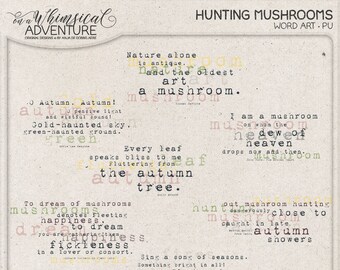 on a Whimsical
ADVENTURE
HUNTING MUSHROOMS
WORD ART • PU
Nature alone
is antique,
and the oldest
art
a mushroom.
O Autumn, Autumn!
pensive light
and wistful sound!
Gold-haunted sky,
green-haunted ground.
I am a mushroom
on whom the
dew of
heaven
drops now and then.
Every leaf
speaks bliss to me
Fluttering from
the autumn
tree.
To dream of mushrooms
denotes fleeting
happiness,
to dream
you are gathering them,
fickleness
in a lover or consort.
out mushroom hunting
dangerously close to
caught in late
autumn
showers
Sing a song of seasons,
Something bright in all!